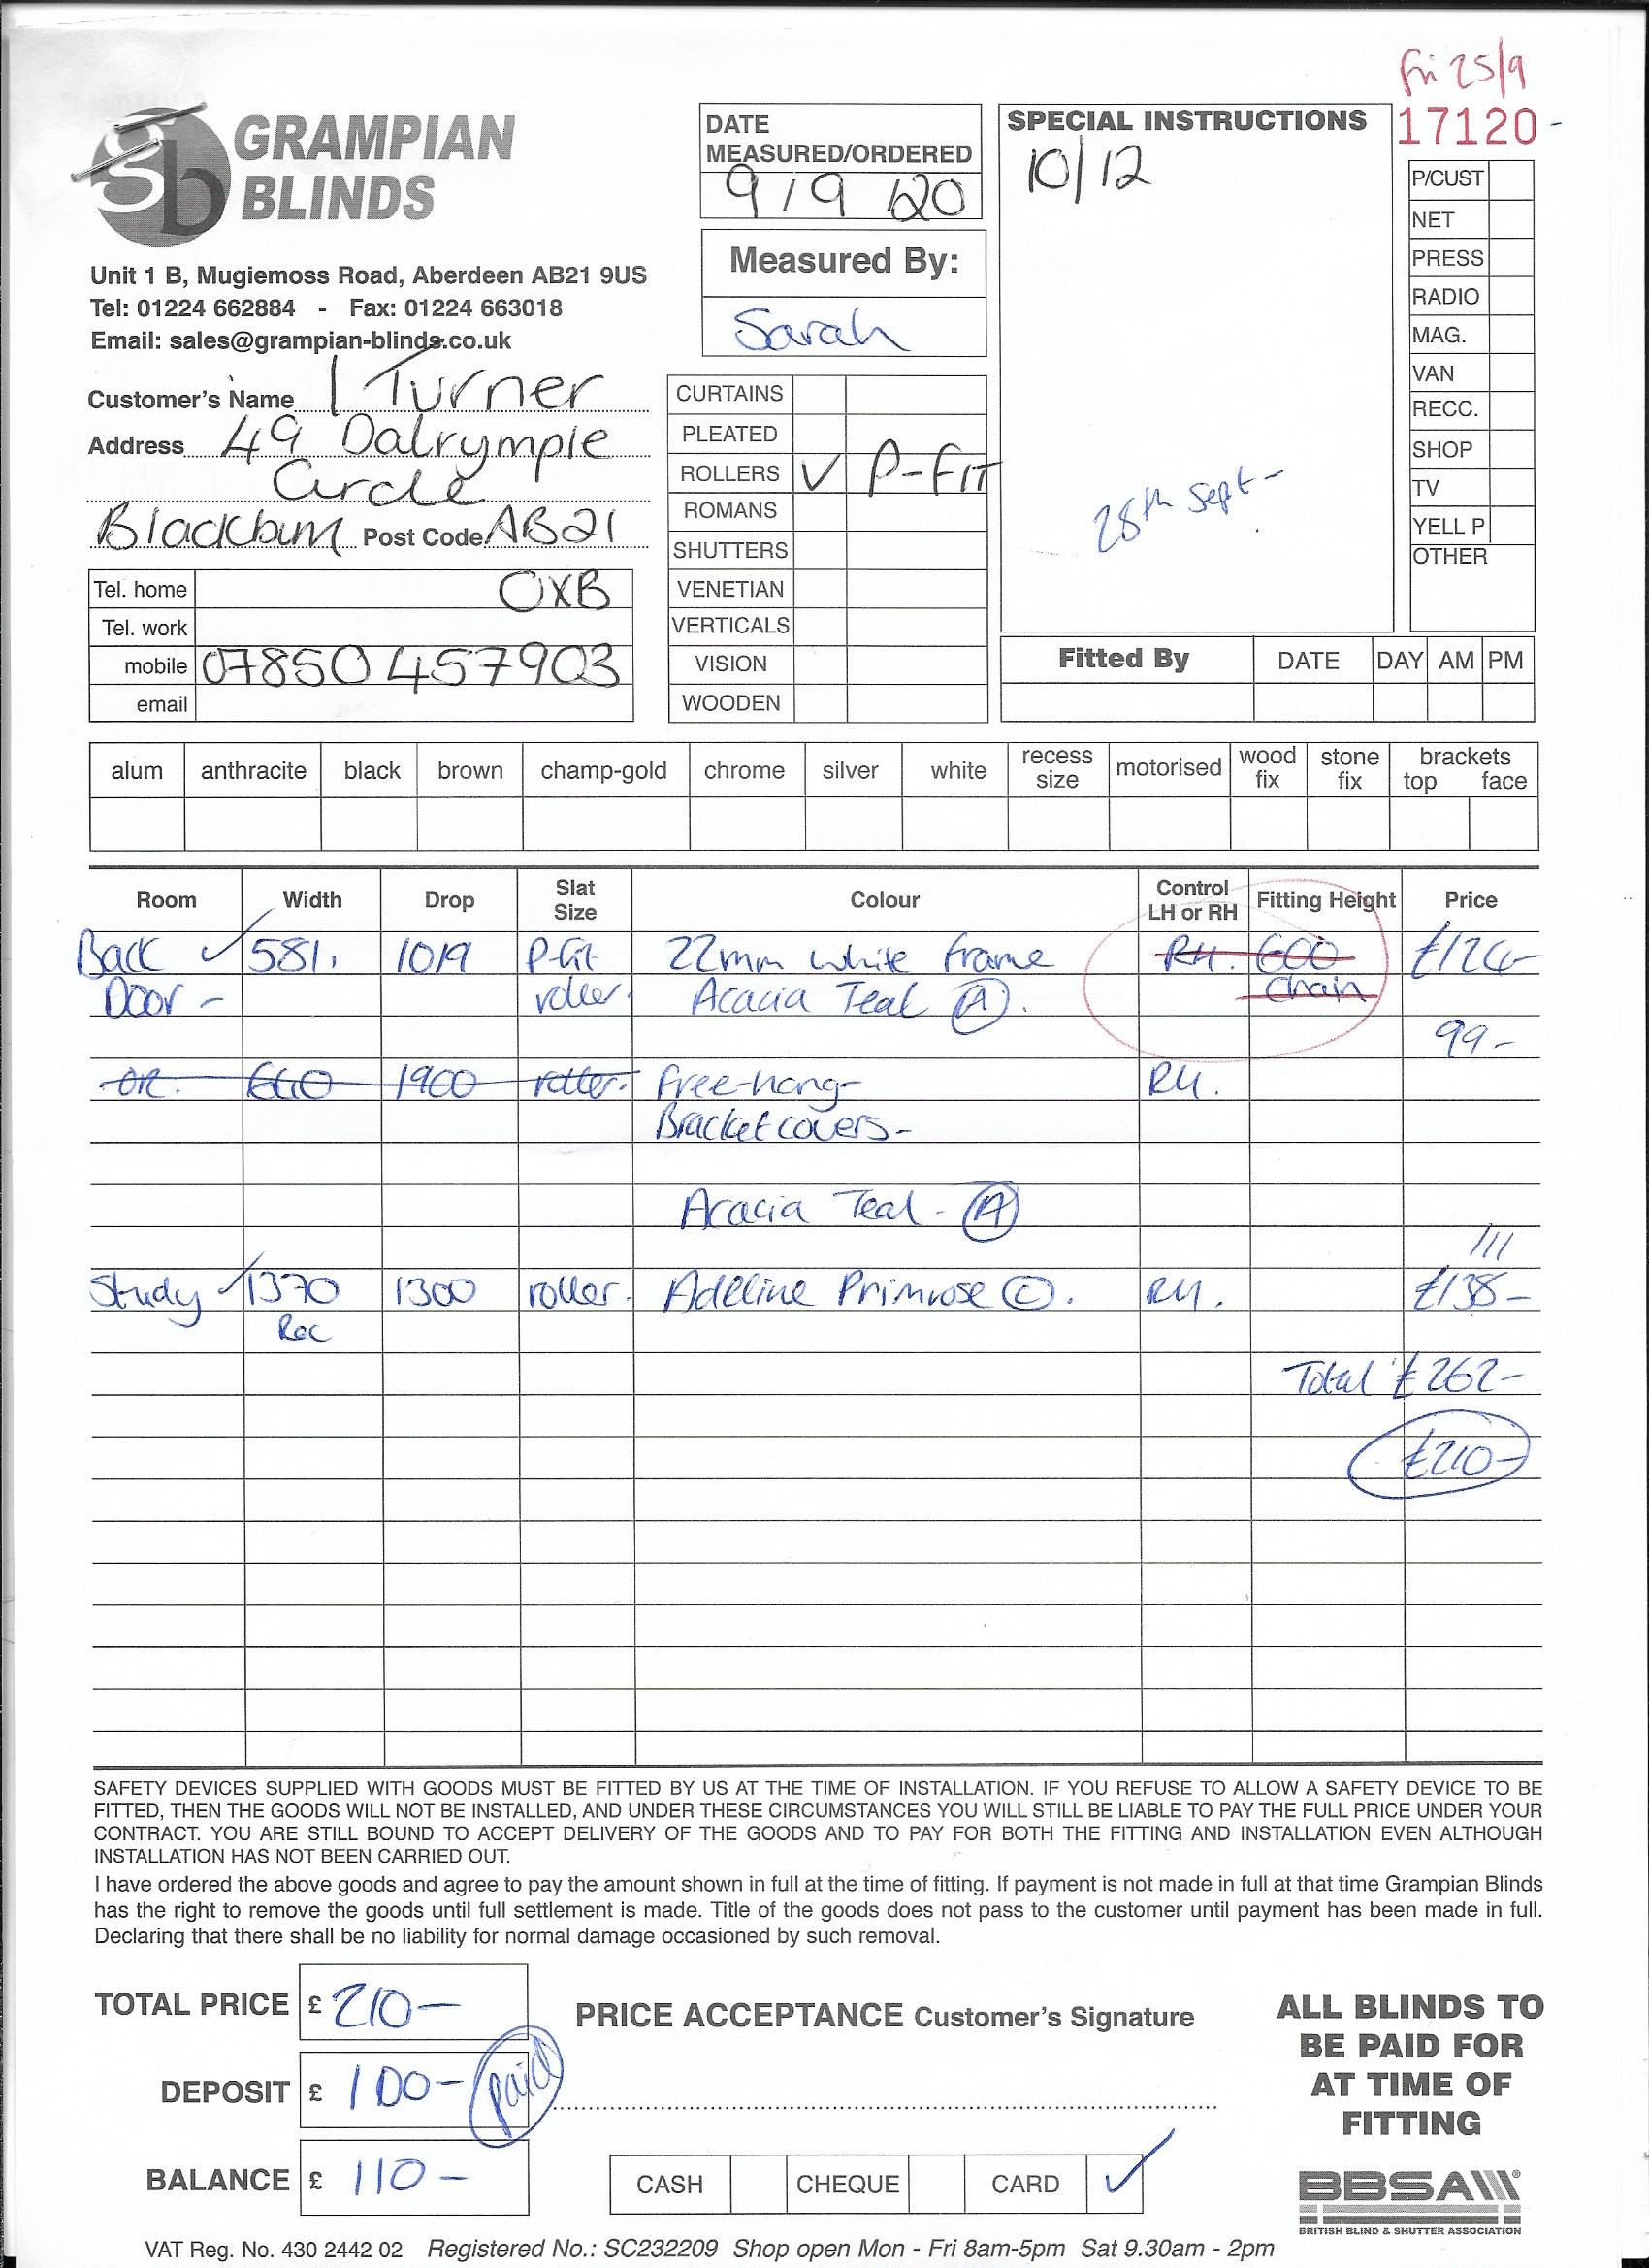 Fri 25/9
17120-
GRAMPIAN
BLINDS
Unit 1 B, Mugiemoss Road, Aberdeen AB21 9US
Tel: 01224 662884 - Fax: 01224 663018
Email: sales@grampian-blinds.co.uk
DATE
MEASURED/ORDERED
9/9/20
Measured By:
Sarah
SPECIAL INSTRUCTIONS
10/12
28th Sept-
P/CUST
NET
PRESS
RADIO
MAG.
VAN
RECC.
SHOP
TV
YELL P
OTHER
Customer's Name I Turner
Address 49 Dalrymple
Circle
Blackburn Post Code AB21
0XB
Tel. home
Tel. work
mobile 07850 457903
email
CURTAINS
PLEATED
ROLLERS ✓ P-FIT
ROMANS
SHUTTERS
VENETIAN
VERTICALS
VISION
WOODEN
Fitted By DATE DAY AM PM
alum anthracite black brown champ-gold chrome silver white recess size motorised wood fix stone fix brackets top face
Room Width Drop Slat Size Colour Control LH or RH Fitting Height Price
Back ✓ 581. 1019 P-fit 22mm white frame RH. 600 £124-
Door - roller. Acacia Teal (A). Chain
99-
OR. 660 1900 roller. Free-hang- RH.
Bracket covers-
Acacia Teal - (A)
111
Study ✓ 1370 1300 roller. Adeline Primrose (C). RH. £138-
Rec
Total £262-
£210-
SAFETY DEVICES SUPPLIED WITH GOODS MUST BE FITTED BY US AT THE TIME OF INSTALLATION. IF YOU REFUSE TO ALLOW A SAFETY DEVICE TO BE
FITTED, THEN THE GOODS WILL NOT BE INSTALLED, AND UNDER THESE CIRCUMSTANCES YOU WILL STILL BE LIABLE TO PAY THE FULL PRICE UNDER YOUR
CONTRACT. YOU ARE STILL BOUND TO ACCEPT DELIVERY OF THE GOODS AND TO PAY FOR BOTH THE FITTING AND INSTALLATION EVEN ALTHOUGH
INSTALLATION HAS NOT BEEN CARRIED OUT.
I have ordered the above goods and agree to pay the amount shown in full at the time of fitting. If payment is not made in full at that time Grampian Blinds
has the right to remove the goods until full settlement is made. Title of the goods does not pass to the customer until payment has been made in full.
Declaring that there shall be no liability for normal damage occasioned by such removal.
TOTAL PRICE £ 210-
DEPOSIT £ 100- paid
BALANCE £ 110-
PRICE ACCEPTANCE Customer's Signature
CASH CHEQUE CARD ✓
ALL BLINDS TO
BE PAID FOR
AT TIME OF
FITTING
BBSA
BRITISH BLIND & SHUTTER ASSOCIATION
VAT Reg. No. 430 2442 02 Registered No.: SC232209 Shop open Mon - Fri 8am-5pm Sat 9.30am - 2pm